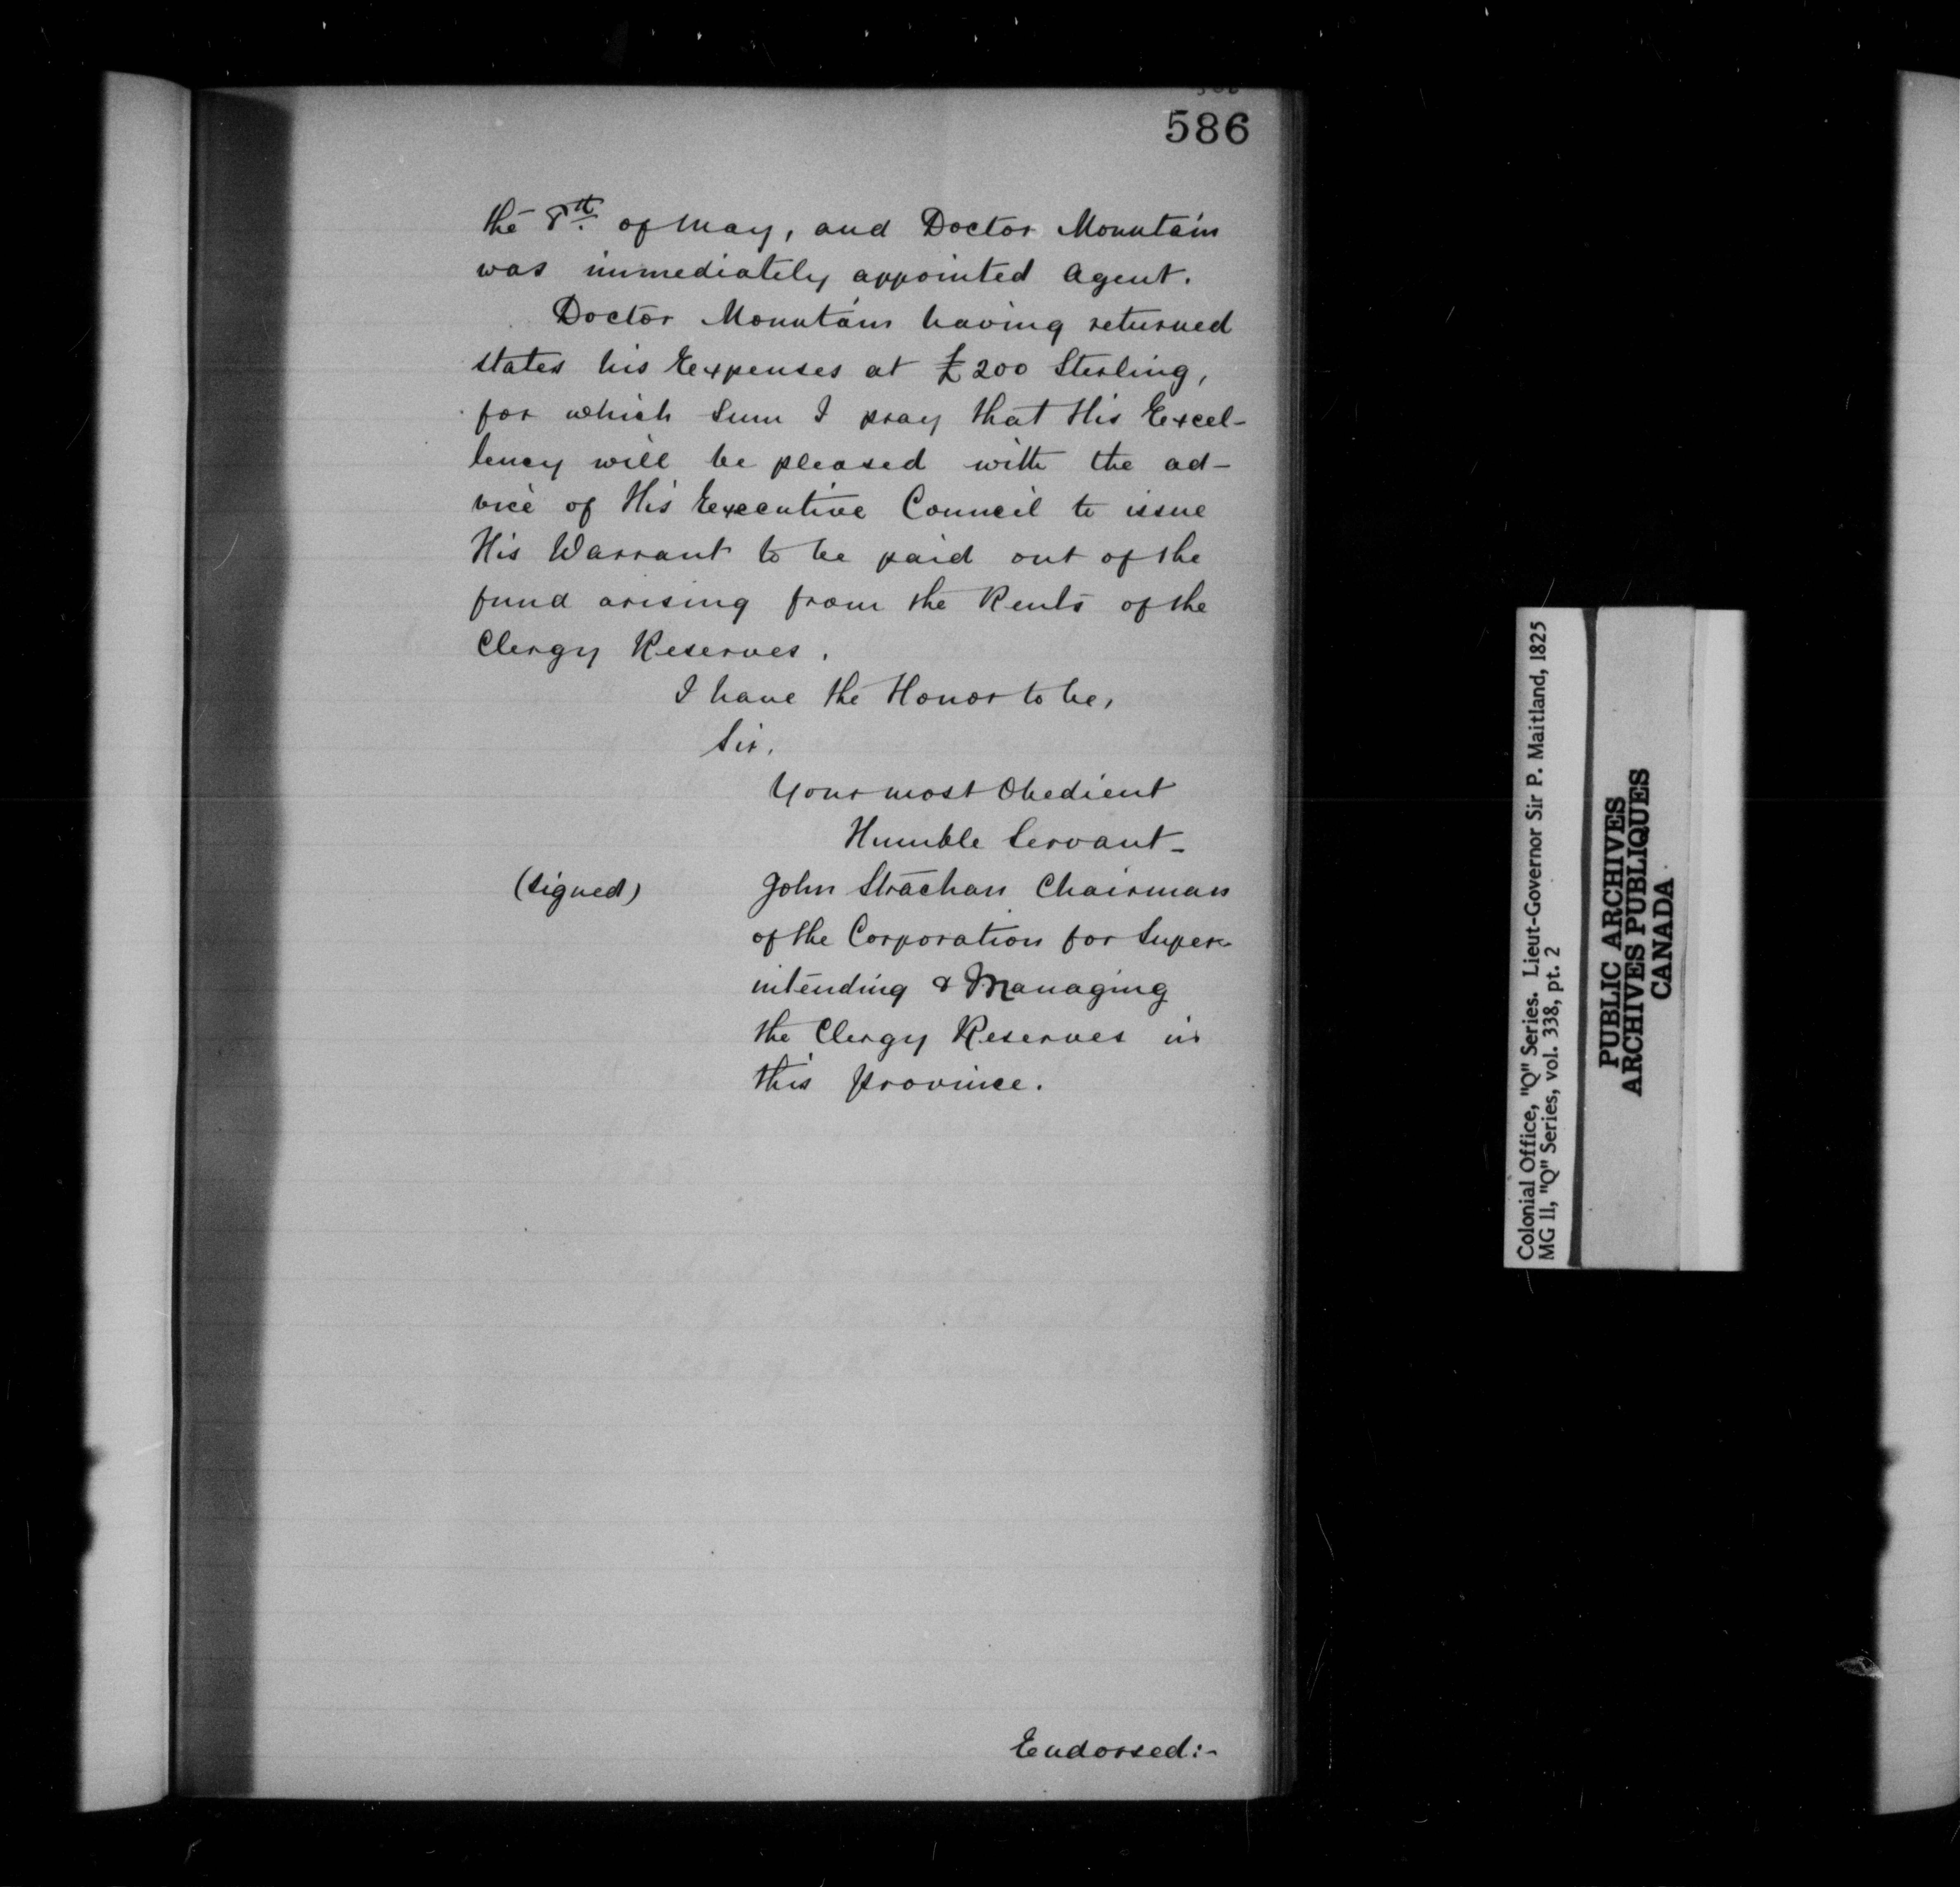 586
the 8th of May, and Doctor Mountain
was immediately appointed Agent.
Doctor Mountain having returned
states his Expenses at £200 Sterling,
for which Sum I pray that His Excel-
lency will be pleased with the ad-
vice of His Executive Council to issue
His Warrant to be paid out of the
fund arising from the Rents of the
Clergy Reserves.
I have the Honor to be,
Sir,
Your most Obedient
Humble Servant-
(Signed) John Strachan Chairman
of the Corporation for Super-
intending & Managing
the Clergy Reserves in
this Province.
Endorsed:-
Colonial Office, "Q" Series. Lieut-Governor Sir P. Maitland, 1825
MG 11, "Q" Series, vol. 338, pt. 2
PUBLIC ARCHIVES
ARCHIVES PUBLIQUES
CANADA